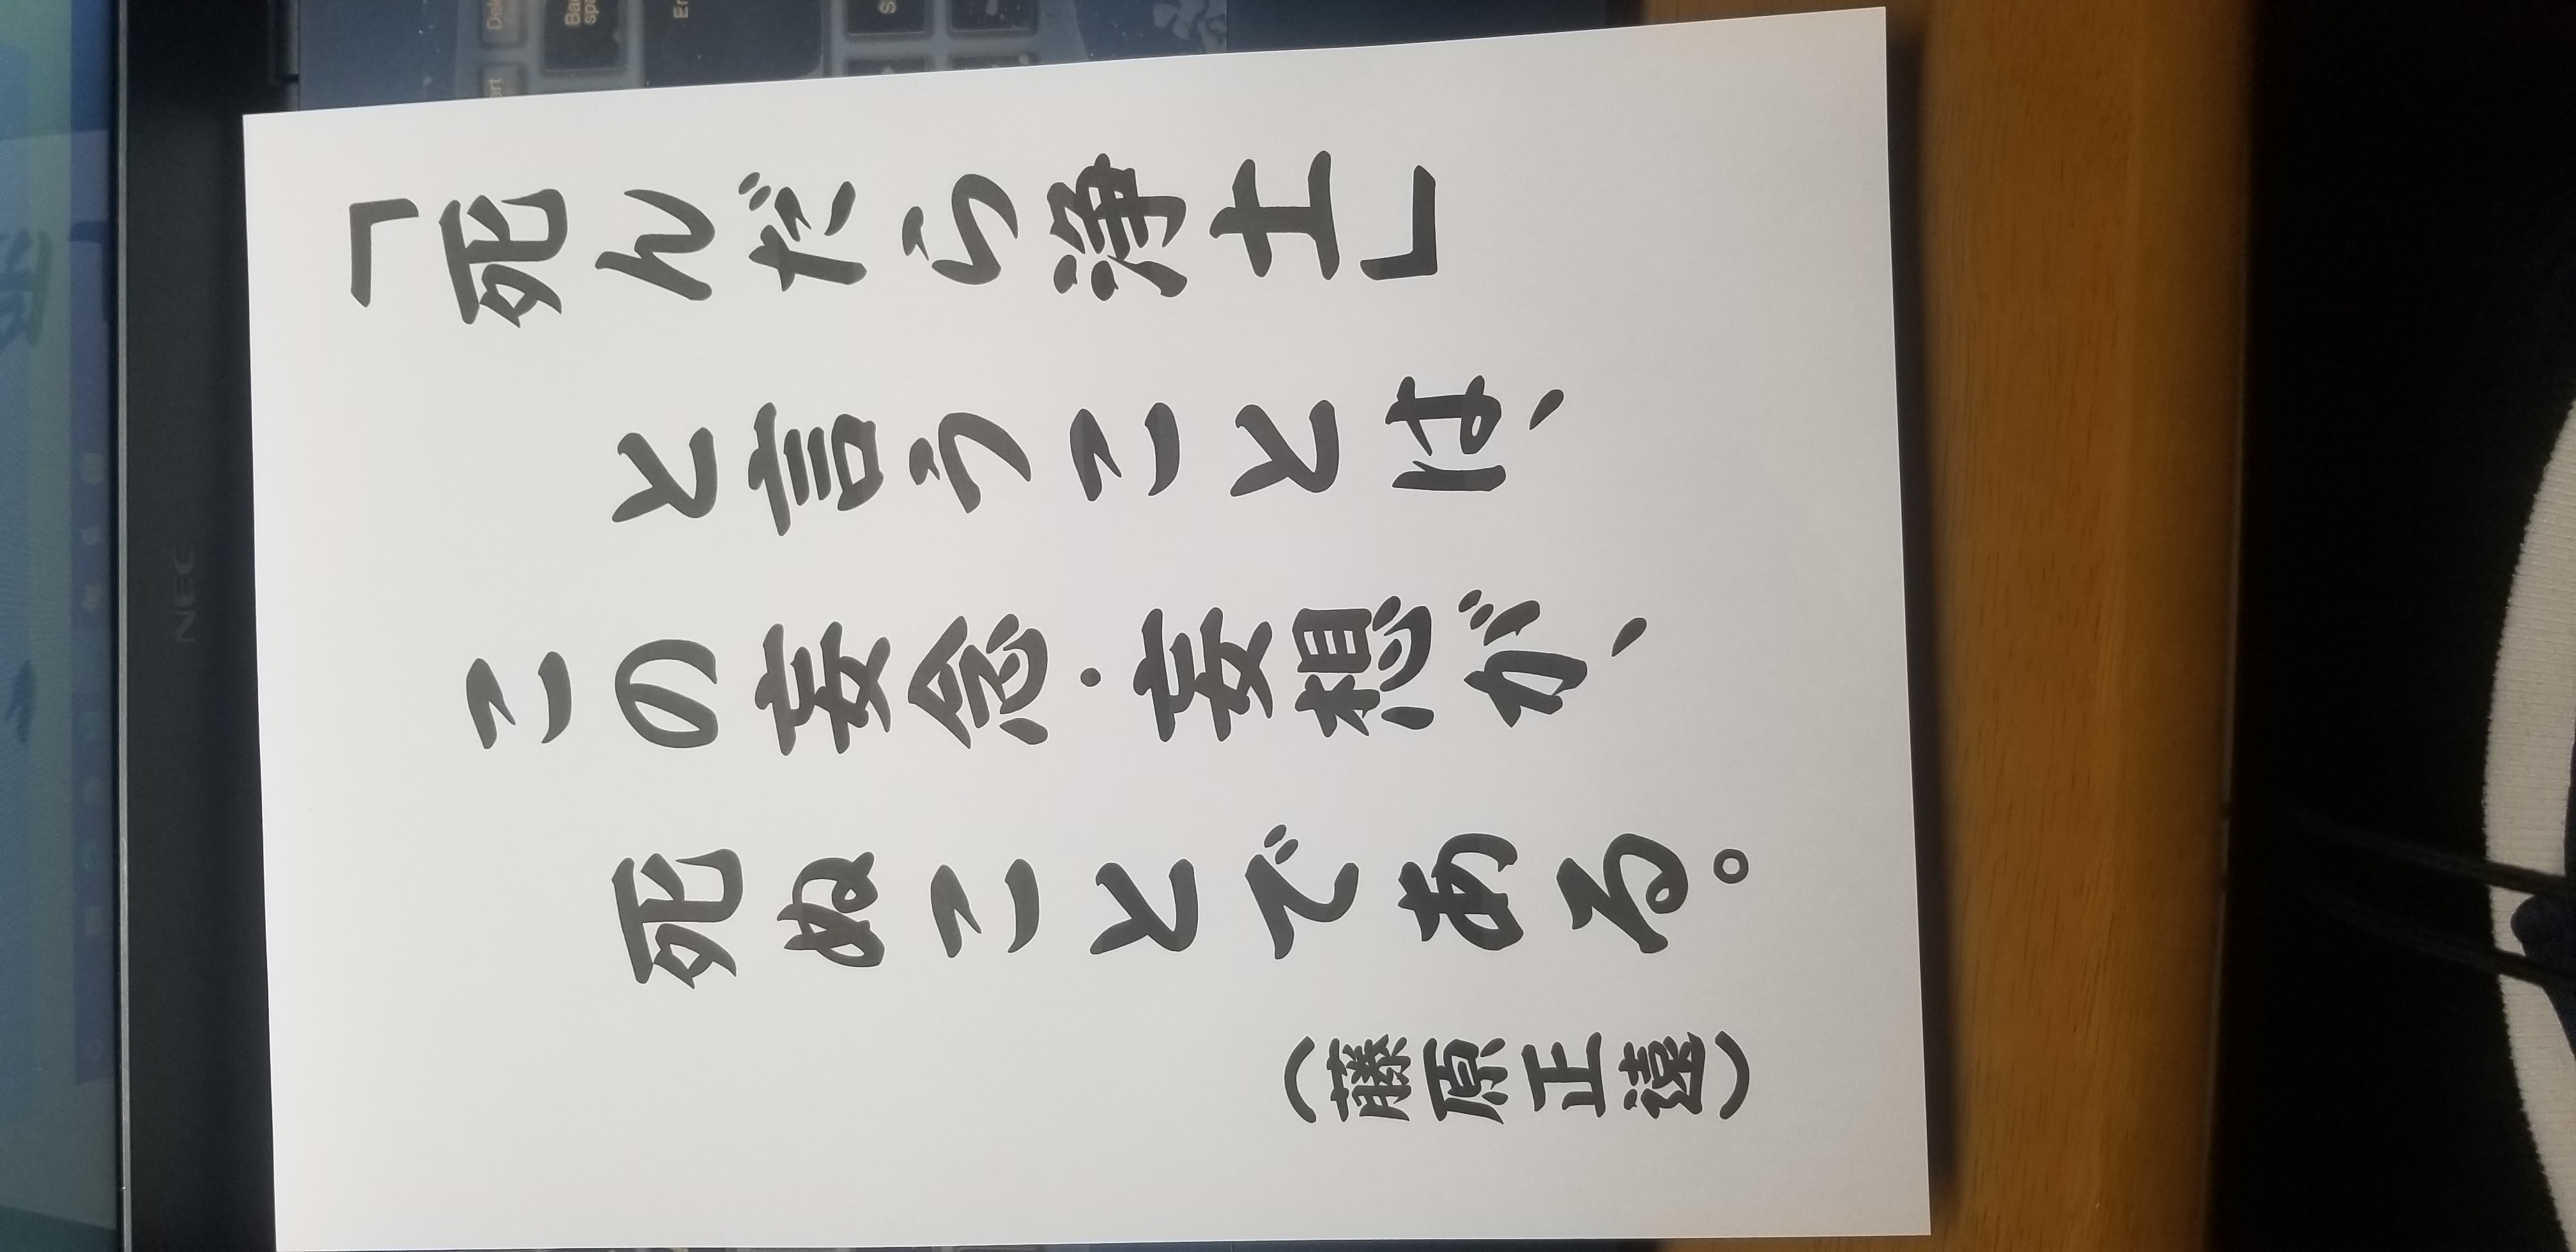 「死んだら浄土」
と言うことは、
この妄念・妄想が、
死ぬことである。
（藤原正遠）
NEC